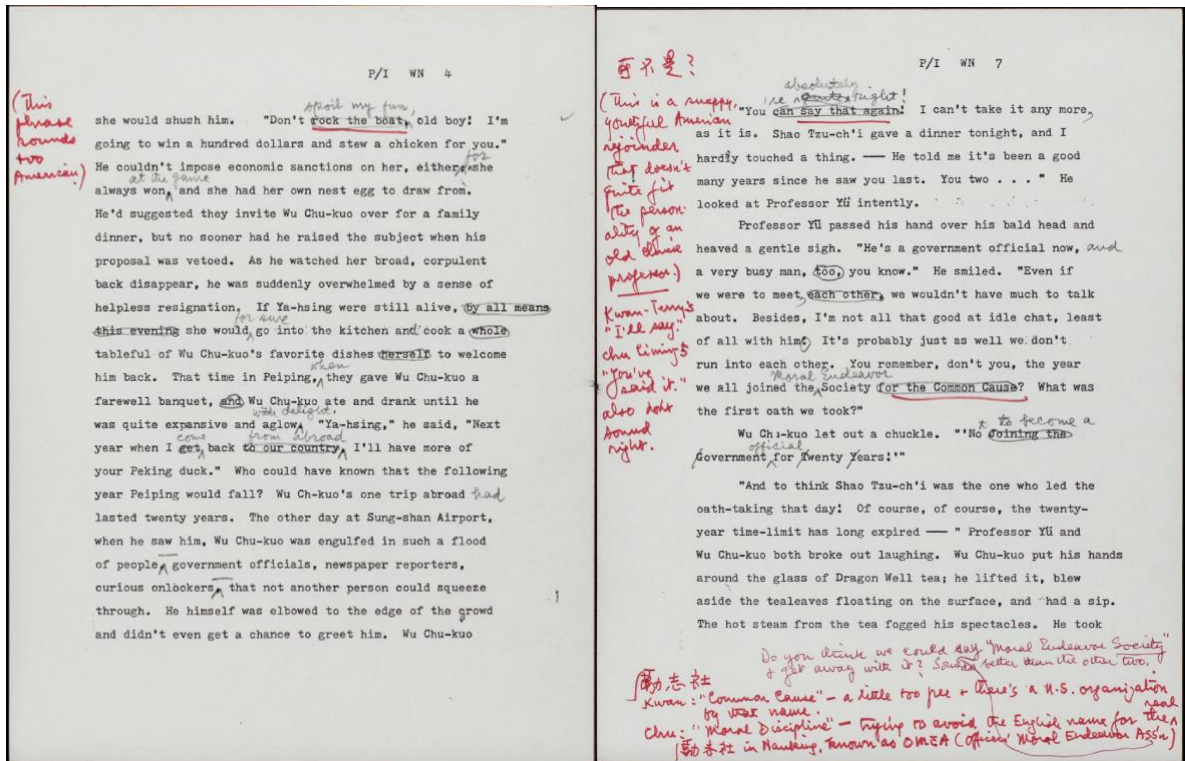 P/I WN 4
(This
phrase
sounds
too
American.)
spoil my fun,
he would shush him. "Don't rock the boat, old boy! I'm
going to win a hundred dollars and stew a chicken for you."
for
He couldn't impose economic sanctions on her, either, she
at the game
always won, and she had her own nest egg to draw from.
He'd suggested they invite Wu Chu-kuo over for a family
dinner, but no sooner had he raised the subject when his
proposal was vetoed. As he watched her broad, corpulent
back disappear, he was suddenly overwhelmed by a sense of
helpless resignation. If Ya-hsing were still alive, by all means
for sure
this evening she would go into the kitchen and cook a whole
tableful of Wu Chu-kuo's favorite dishes herself to welcome
when
him back. That time in Peiping, they gave Wu Chu-kuo a
farewell banquet, and Wu Chu-kuo ate and drank until he
with delight.
was quite expansive and aglow. "Ya-hsing," he said, "Next
come from abroad
year when I get back to our country, I'll have more of
your Peking duck." Who could have known that the following
year Peiping would fall? Wu Ch-kuo's one trip abroad had
lasted twenty years. The other day at Sung-shan Airport,
when he saw him, Wu Chu-kuo was engulfed in such a flood
of people, government officials, newspaper reporters,
curious onlookers, that not another person could squeeze
through. He himself was elbowed to the edge of the growd
and didn't even get a chance to greet him. Wu Chu-kuo
P/I WN 7
可不是?
(This is a snappy,
youthful American
rejoinder
that doesn't
quite fit
the person-
ality of an
old
professor.)
Kwan-Terry's
"I'll say."
Chu Liming's
"You've
said it."
also don't
sound
right.
absolutely
're quite right!
"You can say that again! I can't take it any more,
as it is. Shao Tzu-ch'i gave a dinner tonight, and I
hardly touched a thing. — He told me it's been a good
many years since he saw you last. You two . . . " He
looked at Professor Yü intently.
Professor Yü passed his hand over his bald head and
heaved a gentle sigh. "He's a government official now, and
a very busy man, too, you know." He smiled. "Even if
we were to meet each other, we wouldn't have much to talk
about. Besides, I'm not all that good at idle chat, least
of all with him. It's probably just as well we don't
run into each other. You remember, don't you, the year
Moral Endeavor
we all joined the Society for the Common Cause? What was
the first oath we took?"
to become a
Wu Chu-kuo let out a chuckle. "'No Joining the
official
Government for Twenty Years!'"
"And to think Shao Tzu-ch'i was the one who led the
oath-taking that day! Of course, of course, the twenty-
year time-limit has long expired — " Professor Yü and
Wu Chu-kuo both broke out laughing. Wu Chu-kuo put his hands
around the glass of Dragon Well tea; he lifted it, blew
aside the tealeaves floating on the surface, and had a sip.
The hot steam from the tea fogged his spectacles. He took
Do you think we could say "Moral Endeavor Society"
& get away with it? Sounds better than the other two.
勵志社
Kwan: "Common Cause" — a little too free + there's a U.S. organization
by that name.
Chu: "Moral Discipline" — trying to avoid the English name for the real
勵志社 in Nanking, known as OMEA (Officers' Moral Endeavor Ass'n)